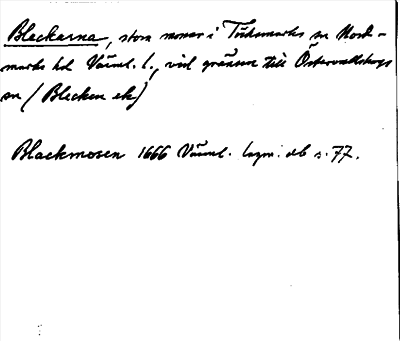 Bleckarna, stora mossar i Töcksmarks sn Nord-
marks hd Värml. l., vid gränsen till Östervallskogs
sn (Blecken ek)
Blackmosen 1666 Värml. lagm. db s. 77.